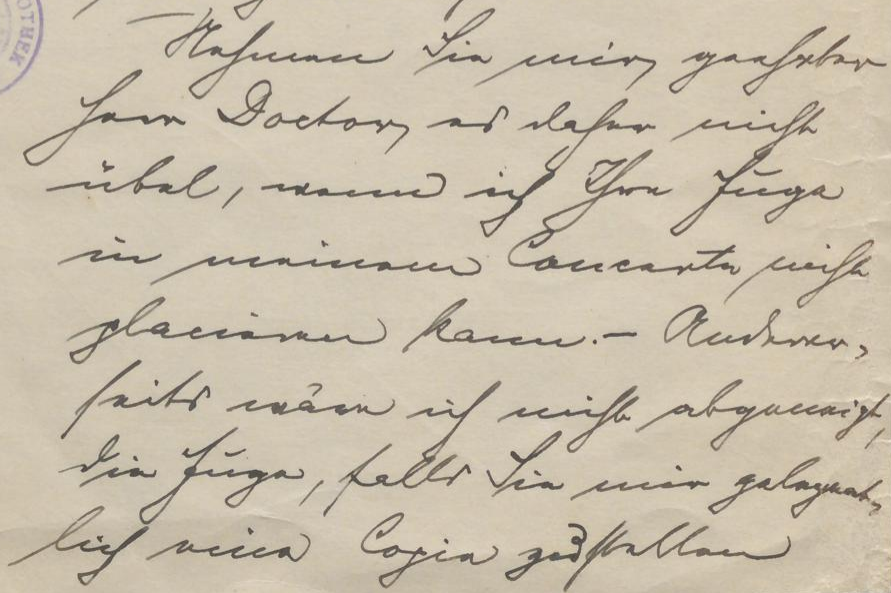 OTHEK
Nehmen Sie mir, geehrter
Herr Doctor, es daher nicht
übel, wenn ich Ihre Fuge
in meinem Concerte nicht
placieren kann. – Anderer-
seits wäre ich nicht abgeneigt,
die Fuge, falls Sie mir gelegent-
lich eine Copie zustellen